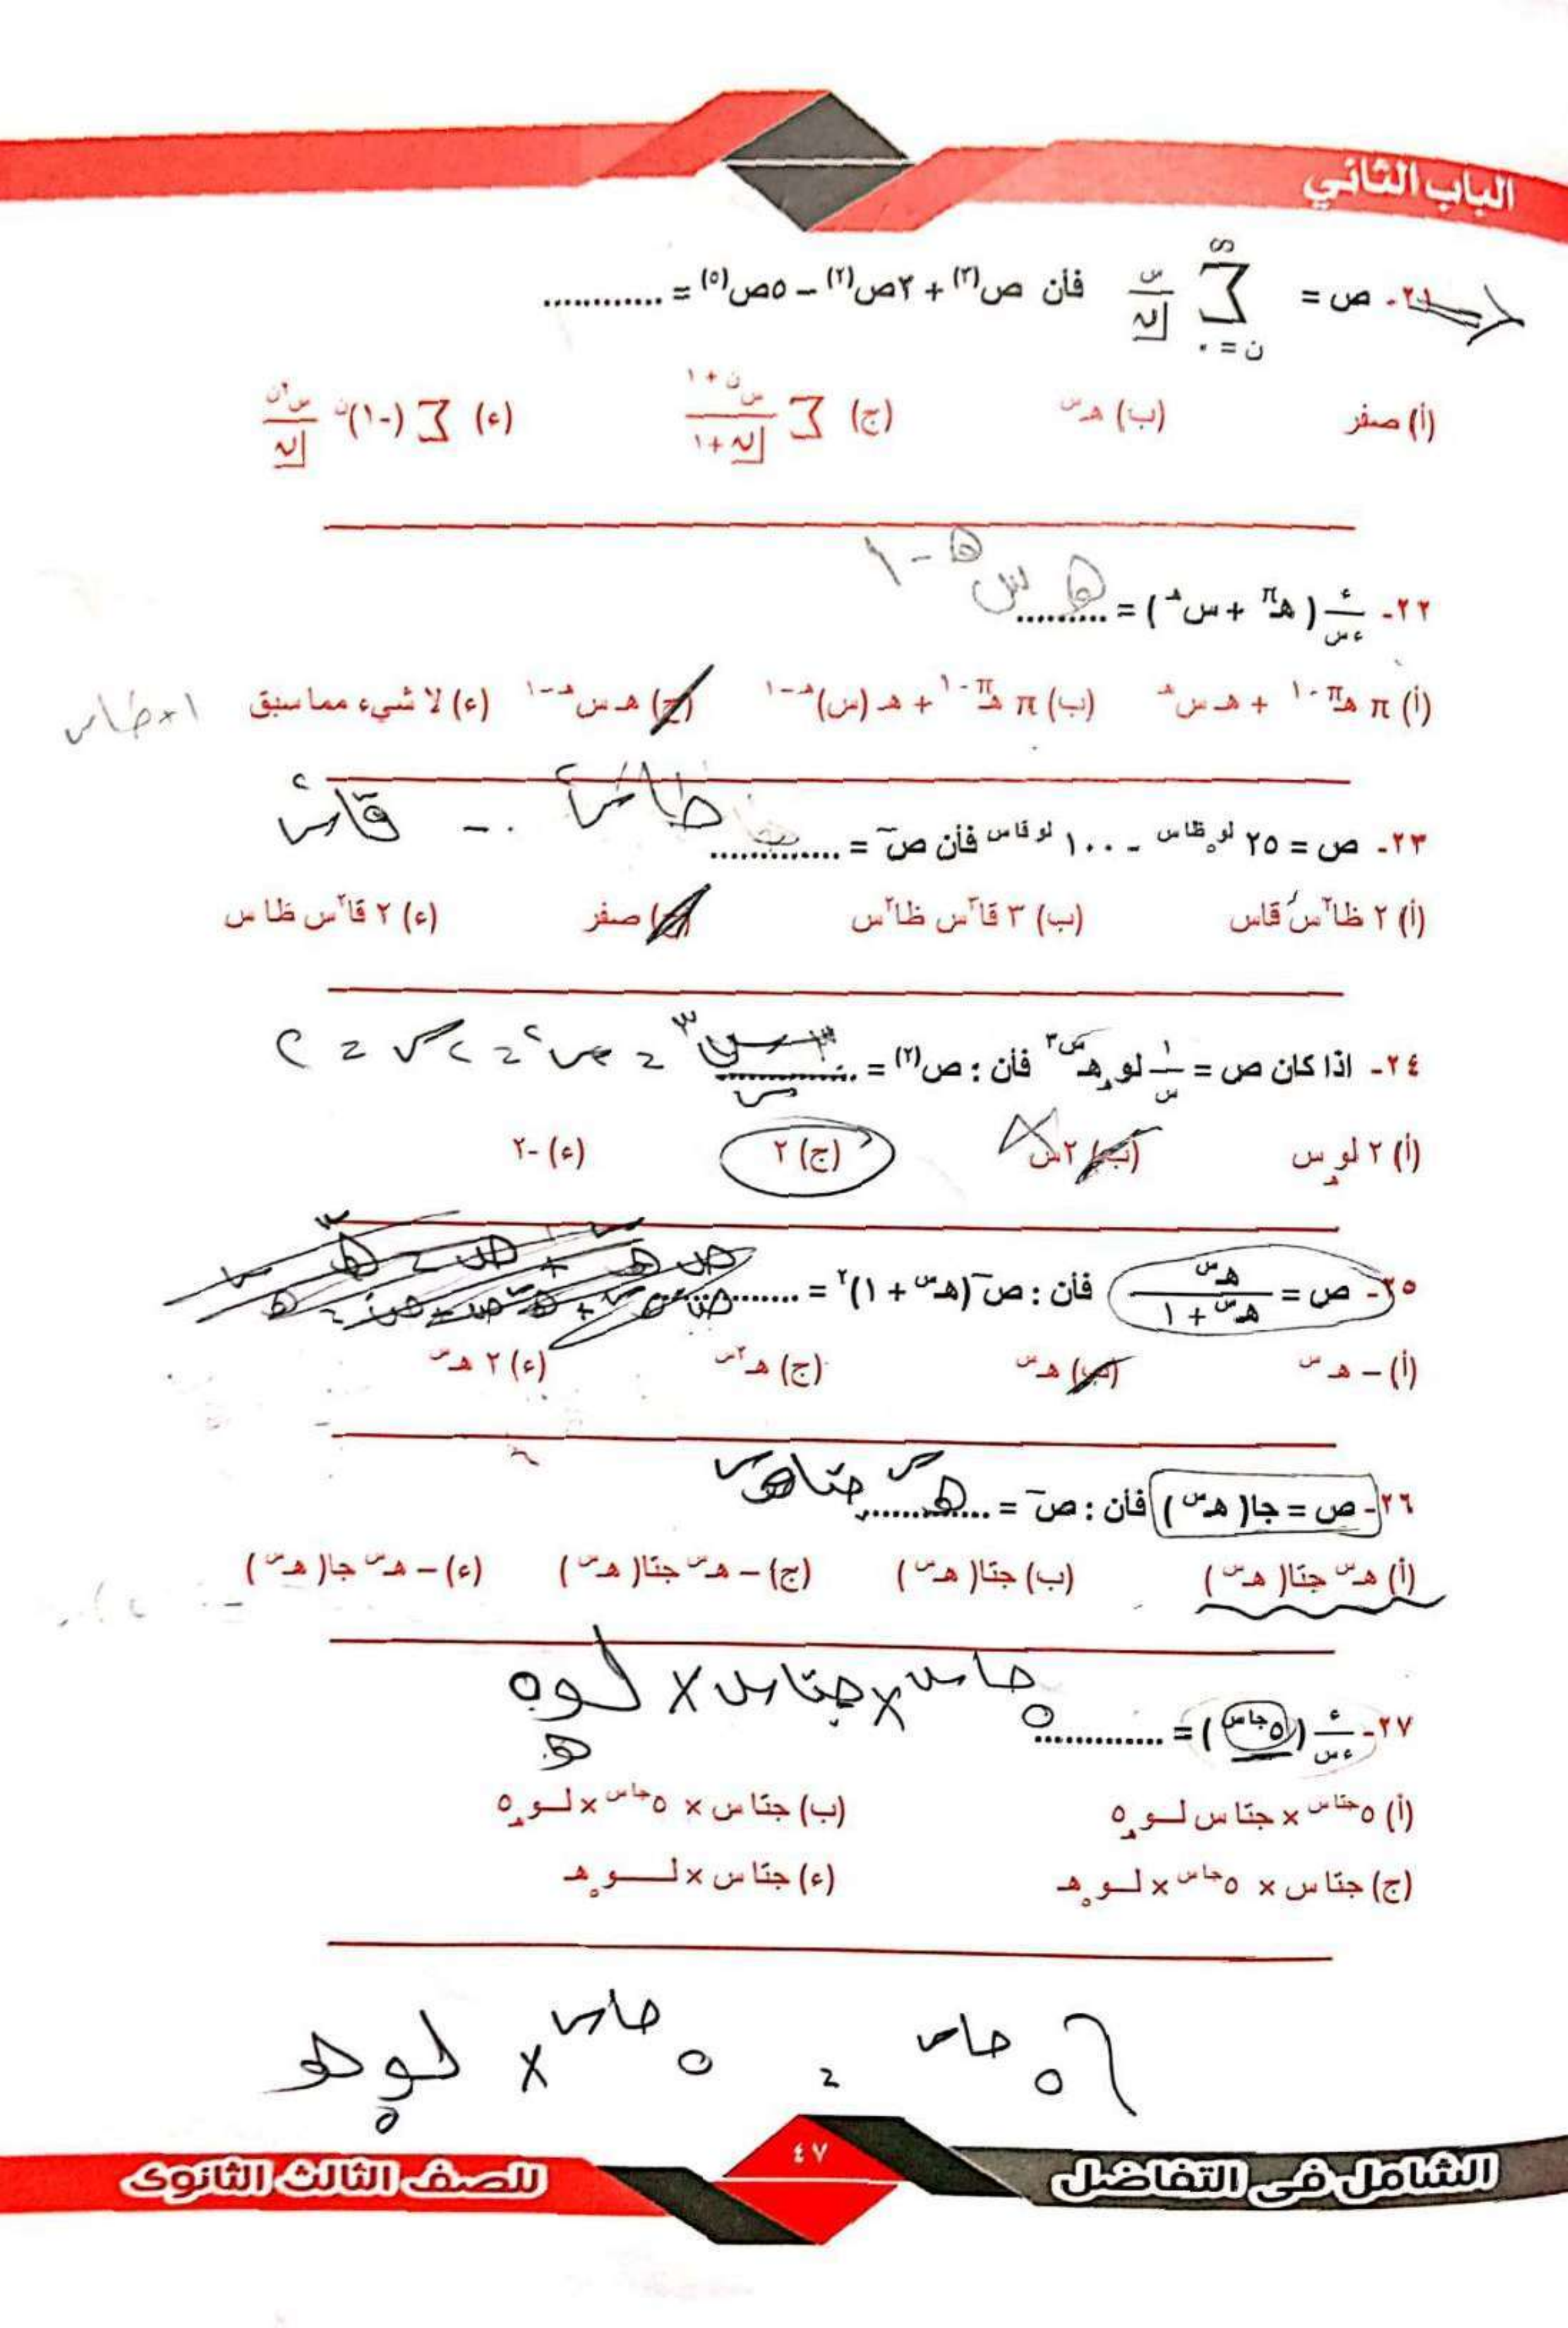 الباب الثاني
٢١- ص = ∑ (ن=٠ ، ∞) س/ن| فأن ص(٣) + ٢ص(٢) – ٥ص(٥) = ............
(أ) صفر (ب) هـ^س (ج) ∑ س^(ن+١)/ن+١| (ء) ∑ (-١)^ن س^٢ن/ن|
هـ س^(هـ-١)
٢٢- ء/ءس (هـ^π + س^هـ) = .........
(أ) π هـ^(π-١) + هـ س^هـ (ب) π هـ^(π-١) + هـ (س)^(هـ-١) (ج) هـ س^(هـ-١) (ء) لا شيء مما سبق
١+ظا٢س
ظا٢س - قا٢س
٢٣- ص = ٢٥^(لو٥ ظا س) - ١٠٠^(لو قاس) فأن ص¯ = .............
(أ) ٢ ظا٢س قاس (ب) ٣ قا٢س ظا٢س (ج) صفر (ء) ٢ قا٢س ظا س
٢٤- اذا كان ص = ١/س لو_هـ هـ^س٣ فأن : ص(٢) = ............ س٣/س = س٢ = ٢س = ٢
(أ) ٢ لو_هـ س (ب) ٢س (ج) ٢ (ء) -٢
٢٥- ص = هـ^س/هـ^س + ١ فأن : ص¯ (هـ^س + ١)^٢ = ............
(أ) – هـ^س (ب) هـ^س (ج) هـ^٢س (ء) ٢ هـ^س
هـ^س جتا هـ^س
٢٦- ص = جا( هـ^س ) فأن : ص¯ = ............
(أ) هـ^س جتا( هـ^س ) (ب) جتا( هـ^س ) (ج) – هـ^س جتا( هـ^س ) (ء) – هـ^س جا( هـ^س )
٥^جاس × جتاس × لو_هـ ٥
٢٧- ء/ءس (٥^جاس) = .............
(أ) ٥^جتاس × جتاس لــو_هـ ٥ (ب) جتاس × ٥^جاس × لــو_هـ ٥
(ج) جتاس × ٥^جاس × لــو_٥ هـ (ء) جتاس × لــــو_٥ هـ
∫ ٥^جاس = ٥^جاس × لو_٥ هـ
الشامل فى التفاضل
٤٧
للصف الثالث الثانوى